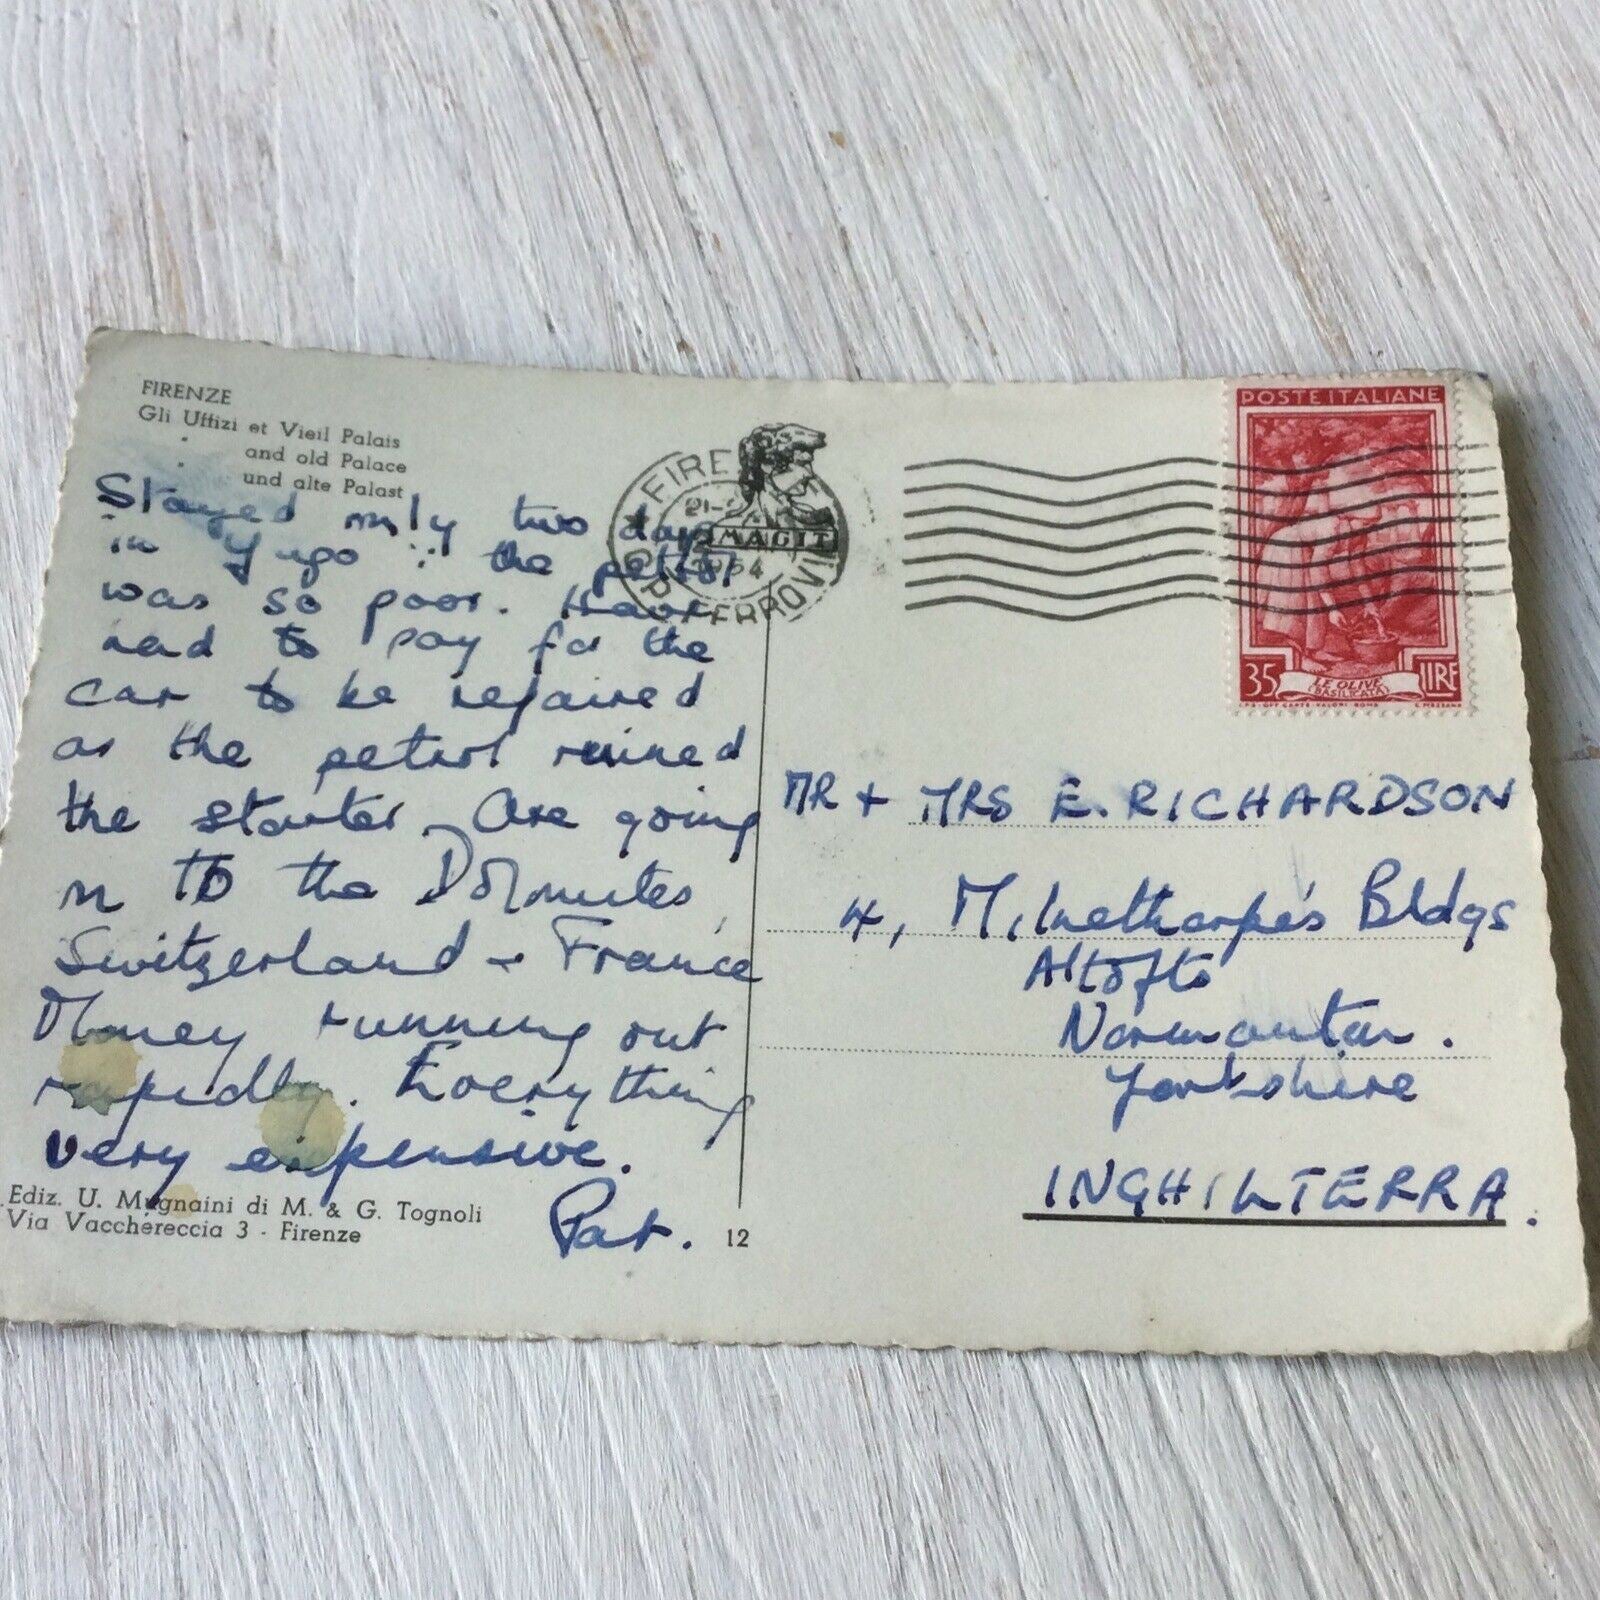 FIRENZE
Gli Uffizi et Vieil Palais
and old Palace
und alte Palast
Stayed only two days
in Yugo ∵ the petrol
was so poor. Have
had to pay for the
car to be repaired
as the petrol ruined
the starter. Are going
on to the Dolomites,
Switzerland + France
Money running out
rapidly. Everything
very expensive.
Pat.
Ediz. U. Mugnaini di M. & G. Tognoli
Via Vacchereccia 3 - Firenze
12
FIRE
21-2
1954
FERROVIA
POSTE ITALIANE
35 LIRE
LE OLIVE
(BASILICATA)
I.P.S. OFF. CARTE-VALORI-ROMA
MR + MRS E. RICHARDSON
4, Milnethorpe's Bldgs
Altofts
Normanton.
Yorkshire
INGHILTERRA.